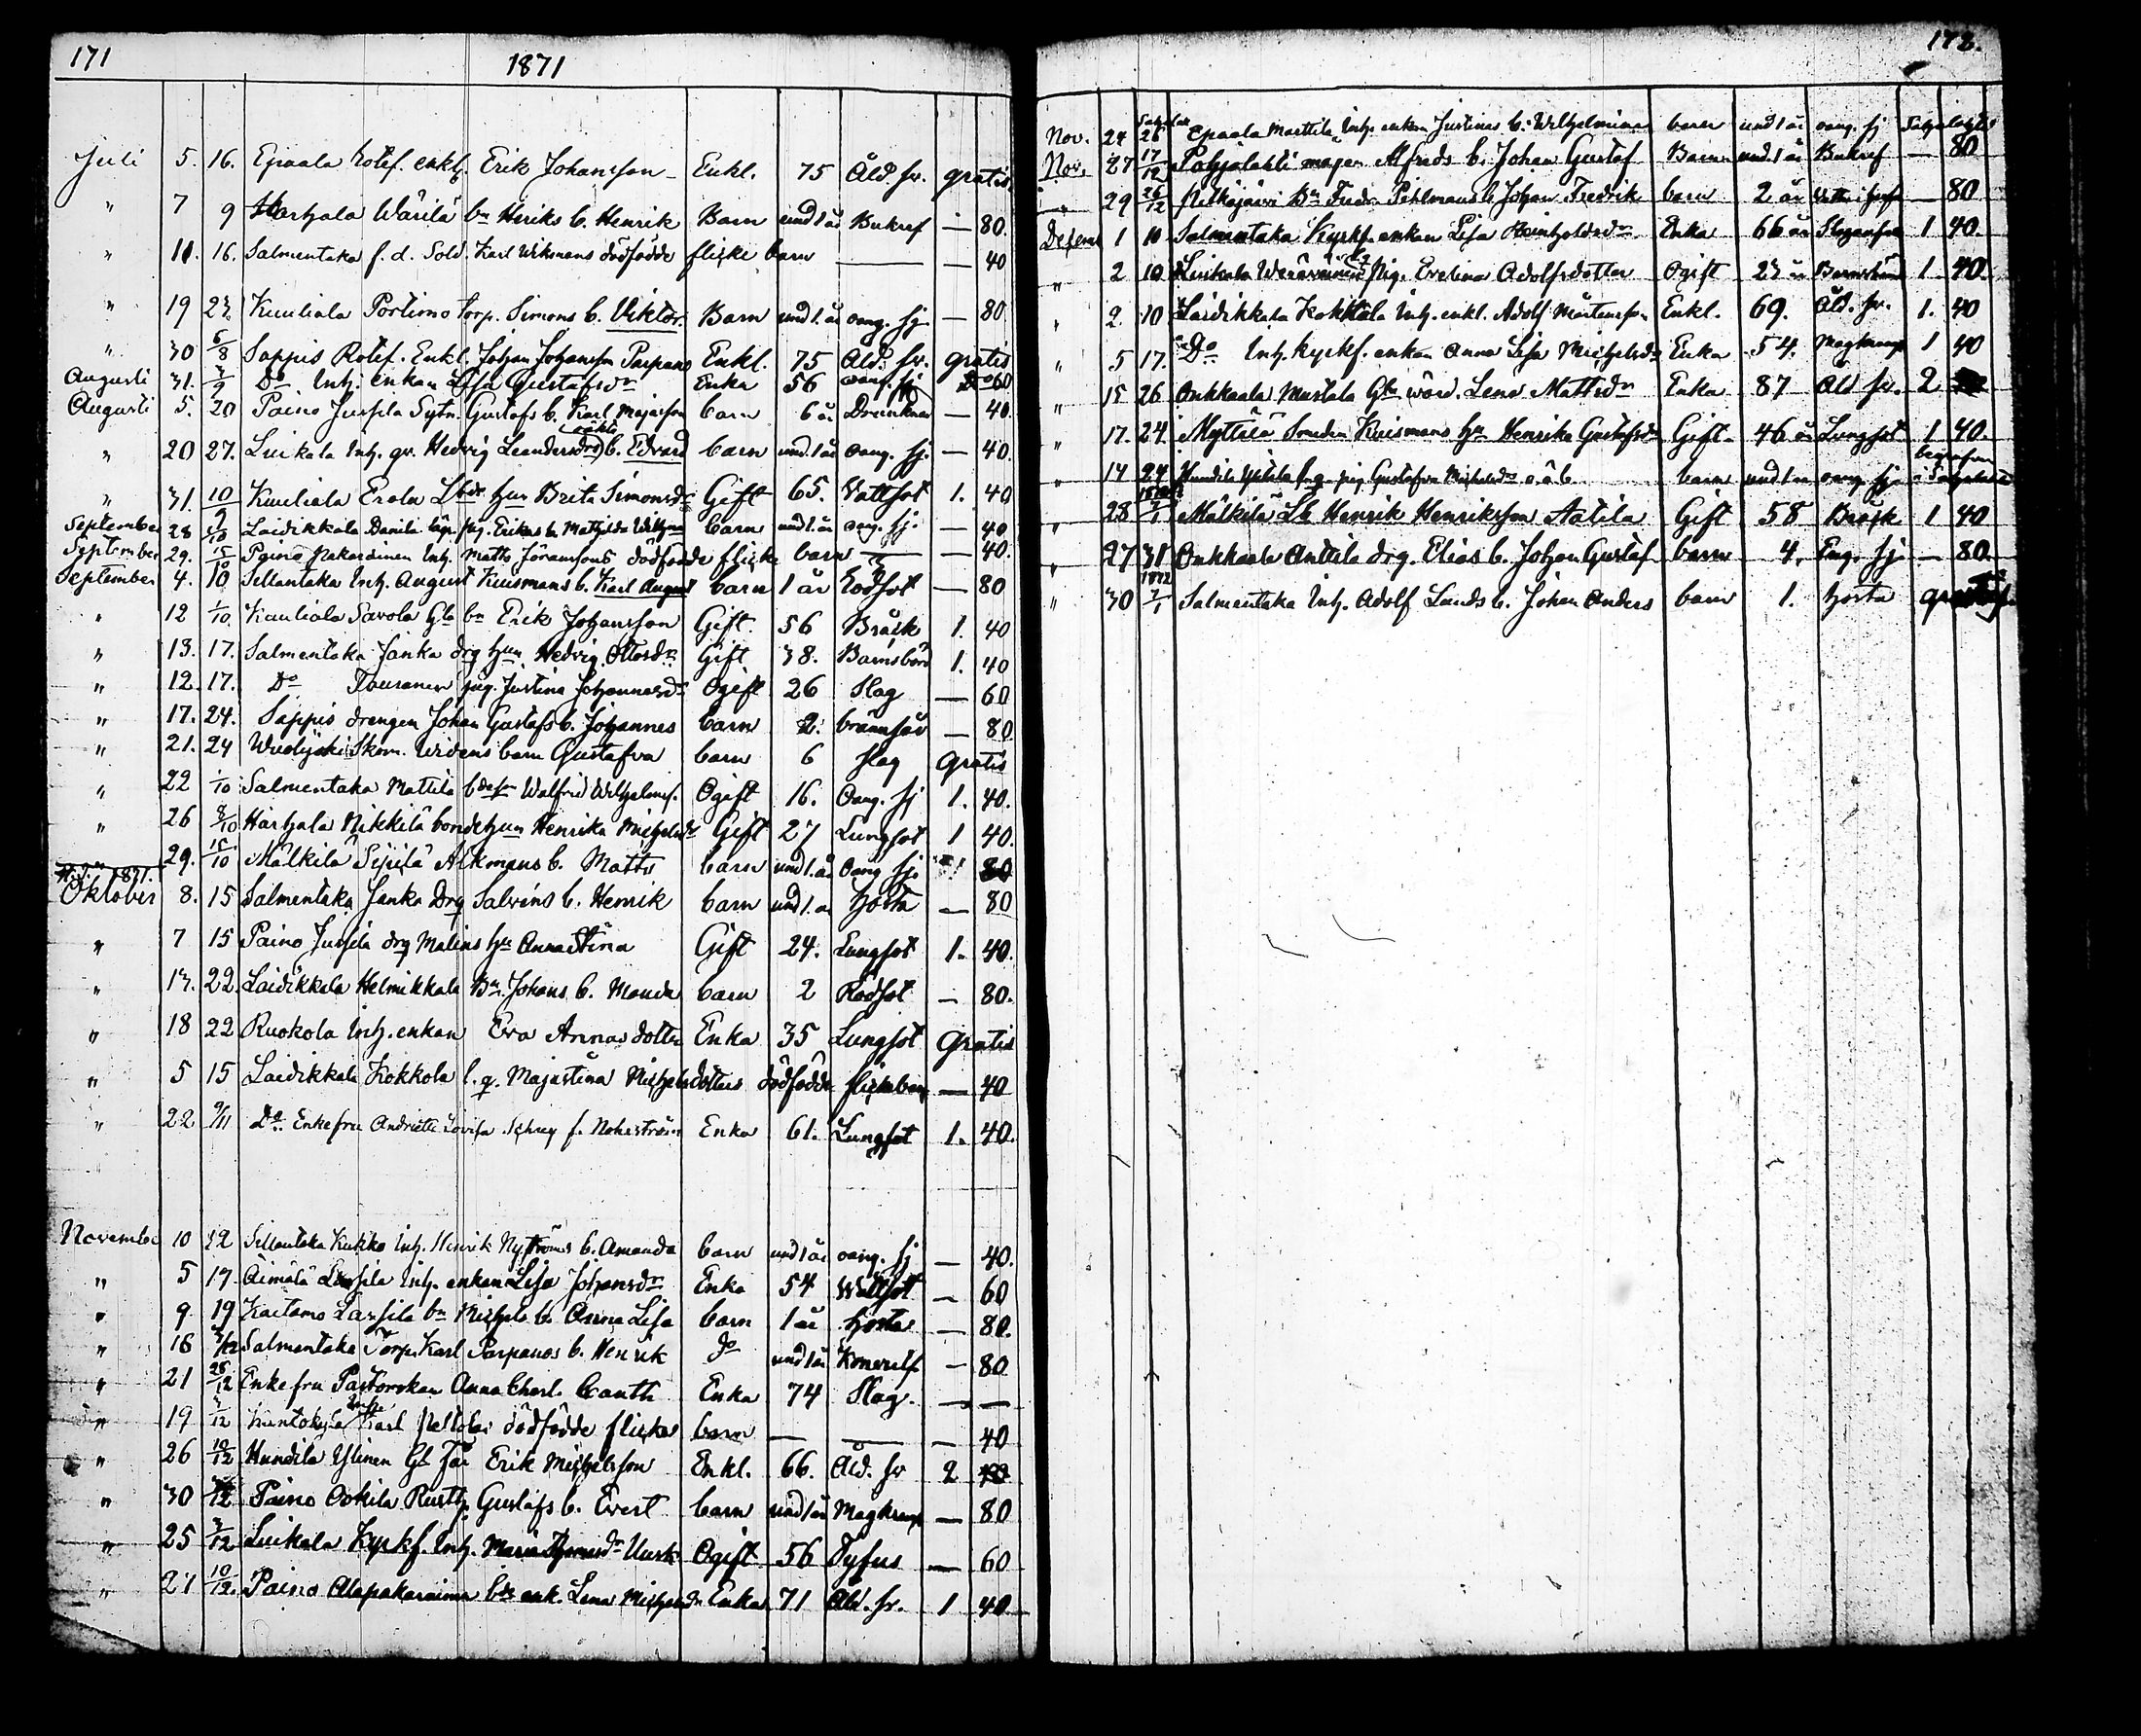 171
1871
Juli 5. 16. Epaala Rotef. enkl. Erik Johansson Enkl. 75 Åld. sv. gratis
" 7 9 Hartzala Wärilä bn Henriks b. Henrik Barn und 1 år Bukref — 80.
" 11. 16. Salmentaka f. d. Sold. Karl Wikmans dödfödde flicke barn — — 40
" 19 23 Kuuliala Portimo Torp. Simons b. Viktor Barn und 1. år oang. sj. — 80
" 30 6/8 Sappis Rotef. Enkl. Johan Johansson Parpans Enkl. 75 Åld. sv. gratis
Augusti 31. 3/9 Do Inh. enkan Lisa Gustafsdr Enka 56 oang. sj. 60
Augusti 5. 20 Paino Jussila Sytn. Gustafs b. Karl barn 6 år Drunknad — 40.
" 20 27. Luikala Inh. qv. Hedvig Leandersdrs oäkta b. Edvard barn und. 1 år oang. sj. — 40.
" 31. 10/9 Kuuliala Erola Lbdr. hu Brita Simonsdr Gift 65. Vattsot 1. 40
September 28 1/10 Laidikkala Danila pig. Erikas b. Mathilda barn und 1. år oang. sj. — 40
September 29. 15/10 Paino Pakarainen Inh. Matts Jöranssons dödfödde flicke barn — — 40.
September 4. 10 Sellantaka Inh. August Kuismans b. Karl August barn 1 år Rödsot — 80
" 12 1/10 Kuuliala Savola Gla bn Erik Johansson Gift. 56 Bråck 1. 40
" 13. 17. Salmentaka Janka drg hu Hedvig Ottosdr Gift 38. Barnsbörd 1. 40
" 12. 17. Do pig. Justina Johannesdr Ogift 26 Slag — 60
" 17. 24. Sappis drengen Johan Gustafs b. Johannes barn 2. — 80
" 21. 24 Skom. Widens barn Gustafva barn 6 slag gratis
" 22 1/10 Salmentaka Mattila Walfrid Wilhelmss. Ogift 16. Oang. sj 1. 40.
" 26 8/10 Hartzala Nikkilä bondehu Henrika Michelsdr Gift 27 Lungsot 1 40.
" 29. 15/10 Mälkilä Sipilä Alkmans b. Matts barn und 1. år Oang sj. 80
1871.
Oktober 8. 15 Salmentaka Janka Drg Salvins b. Henrik barn und 1. år hosta — 80
" 7 15 Paino Jussila drg Malins hu Anna Stina Gift 24. Lungsot 1. 40.
" 13. 22. Laidikkala Helmikkala Bn. Johans b. Manda barn 2 Rödsot — 80.
" 18 22 Ruokola Inh. enkan Eva Annas dotter Enka 35 Lungsot Gratis
" 5 15 Laidikkala Kokkola l. q. Majastina Michelsdotters dödfödde flickebarn — 40
" 22 9/11 Do. Enkefru Andriette Lovisa f. Enka 61. Lungsot 1. 40.
November 10 12 Sellantaka Kukko Inh. Henrik Nyströms b. Amanda barn und 1 år oang. sj — 40.
" 5 19 Äimälä Lassila Inh. enkan Lisa Johansdr Enka 54 Wattsot — 60
" 9. 19 Kaitamo Lassila bn Michels b. Anna Lisa barn 1 år hosta — 80.
" 16 3/12 Salmentaka Torp. Karl Parpanos b. Henrik do und 1 år — 80
" 21 26/12 Enkefru Pastorskan Anna Charl. Canth Enka 74 Slag. — —
" 19 3/12 Karl dödfödde flicke barn — — — 40
" 26 10/12 Hundila Ylinen Gl. Erik Michelsson Enkl. 66. Åld. sv 2
" 30 /12 Paino Ockila Rusth. Gustafs b. Evert barn und 1 år Magkramp — 80
" 25 3/12 Luikala Kyrkf. Inh. Maria Ogift 56 Tyfus — 60
" 27 10/12. Paino Alapakarainen enk. Lena Michelsdr Enka 71 Åld. sv. 1 40
172.
Nov. 24 26 Epaala Marttila Inh. enkan Justinas b. Wilhelmina barn und 1 år oang. sj
Nov. 27 17/12 Pohjalahti mågen Alfreds b. Johan Gustaf Barn und. 1 år Bukref — 80
" 29 26/12 Bn Fredr. Pihlmans b. Johan Fredrik barn 2 år — 80
Decem 1 10 Salmentaka Kyrkf. enkan Lisa Reinholdsdr Enka 66 år 1 40.
" 2 10 Luikala pig. Evelina Adolfsdotter Ogift 23 år 1. 40.
" 2. 10 Laidikkala Kokkola Inh. enkl. Adolf Mårtensson Enkl. 69. Åld. sv. 1. 40
" 5 17. Do Inh. kyrkf. enkan Anna Lisa Michelsdr Enka 54. Magkramp 1 40
" 15 26 Onkkaala Mustala Gbn wärd. Lena Mattsdr Enka 87 Åld sv. 2
" 17. 24. Myttälä Smeden Kuismans hu Henrika Gustafsdr Gift. 46 år Lungsot 1 40.
" 14 24 Hundila pig Gustafva Michelsdr o. ä b. barn und 1 år oang. sj. begrafven i
" 28 7/1 Mälkilä Lb Henrik Henriksson Aatila Gift 58 Bråck 1 40
" 27 31 Onkkaala Anttila drg. Elias b. Johan Gustaf barn 4. sj — 80.
1872
" 30 7/1 Salmentaka Inh. Adolf Lunds b. Johan Anders barn 1. hosta gratis